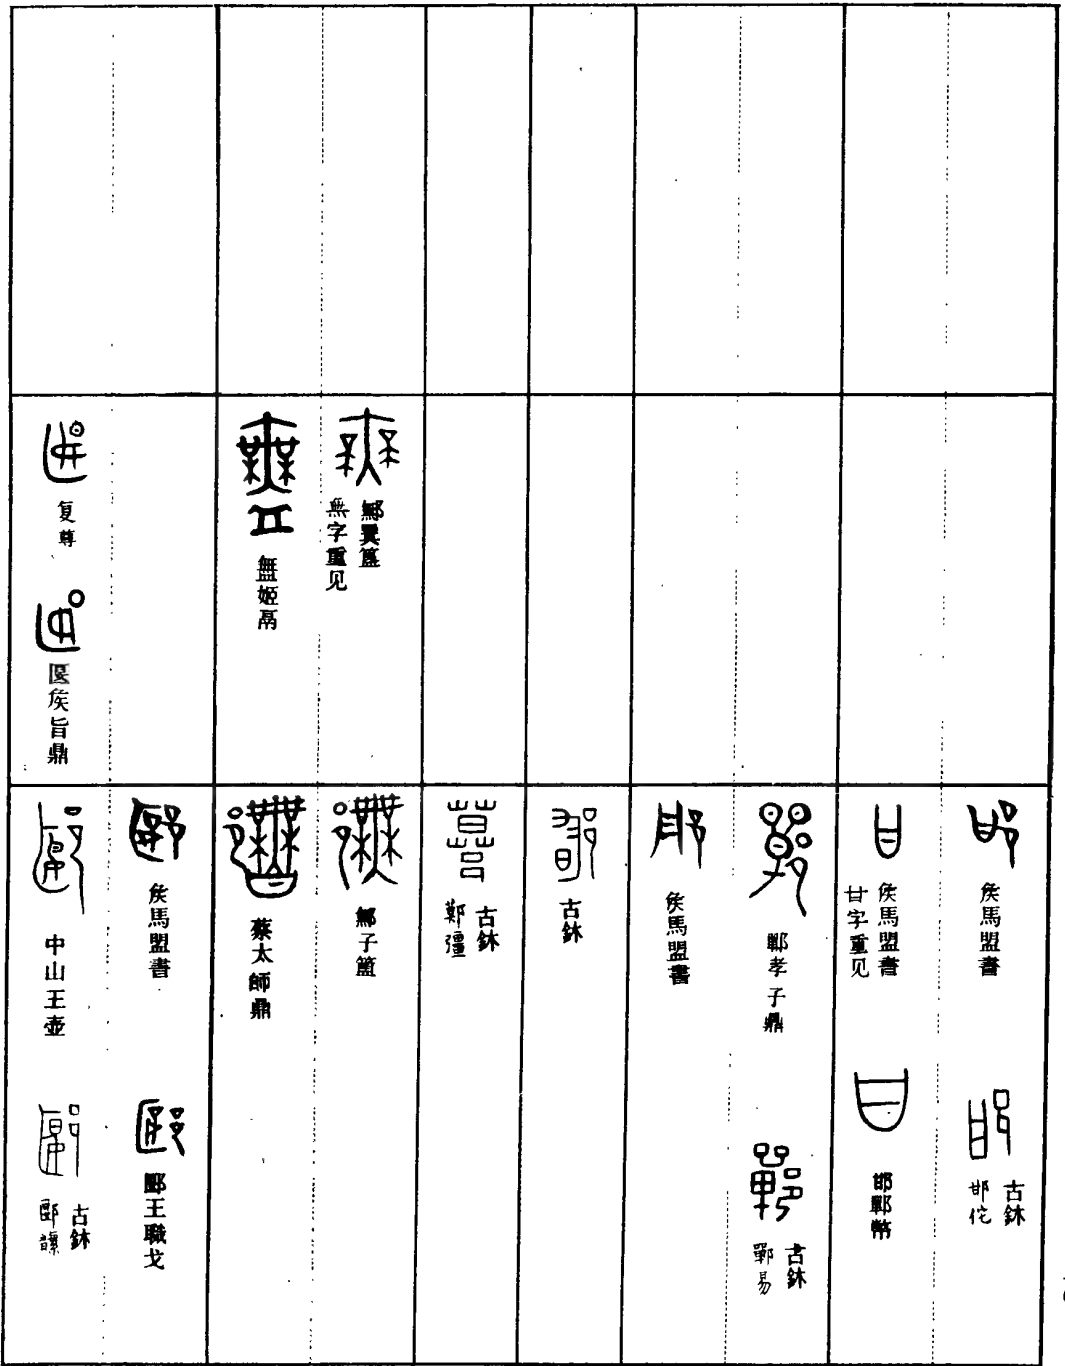 鄦㠱簋
無字重见
無姬鬲
复尊
匽矦旨鼎
矦馬盟書
古鉥
邯佗
矦馬盟書
甘字重见
邯鄲幣
鄲孝子鼎
古鉥
鄲昜
矦馬盟書
古鉥
古鉥
鄭彊
鄦子簠
蔡太師鼎
矦馬盟書
郾王職戈
中山王壺
古鉥